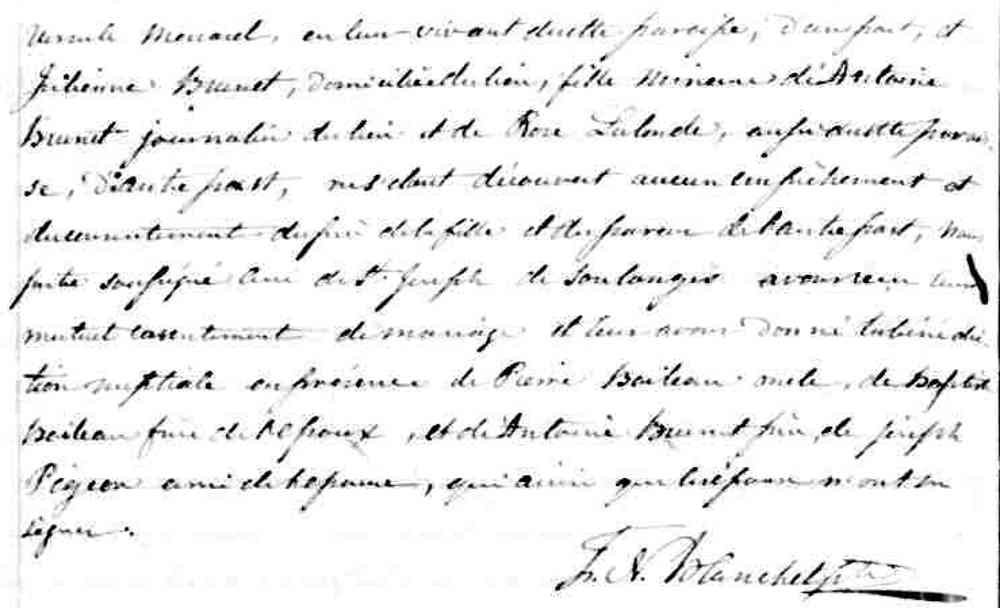 Ursule Menard, en leur vivant de cette paroisse, d'une part, et
Julienne Brunet, domiciliée du lieu, fille mineure d'Antoine
Brunet journalier du lieu et de Rose Lalonde, aussi de cette parois-
se, d'autre part, ne s'étant découvert aucun empêchement et
du consentement du père de la fille et des parens de l'autre part, Nous
prêtre soussigné Curé de St Joseph de Soulanges avons reçu leur
mutuel consentement de mariage et leur avons donné la bénédic-
tion nuptiale en présence de Pierre Boileau oncle, de Baptiste
Boileau frère de l'époux, et d'Antoine Brunet père, de Joseph
Pigeon ami de l'épouse, qui ainsi que les époux n'ont su
signer.
Fr. N. Blanchet ptre